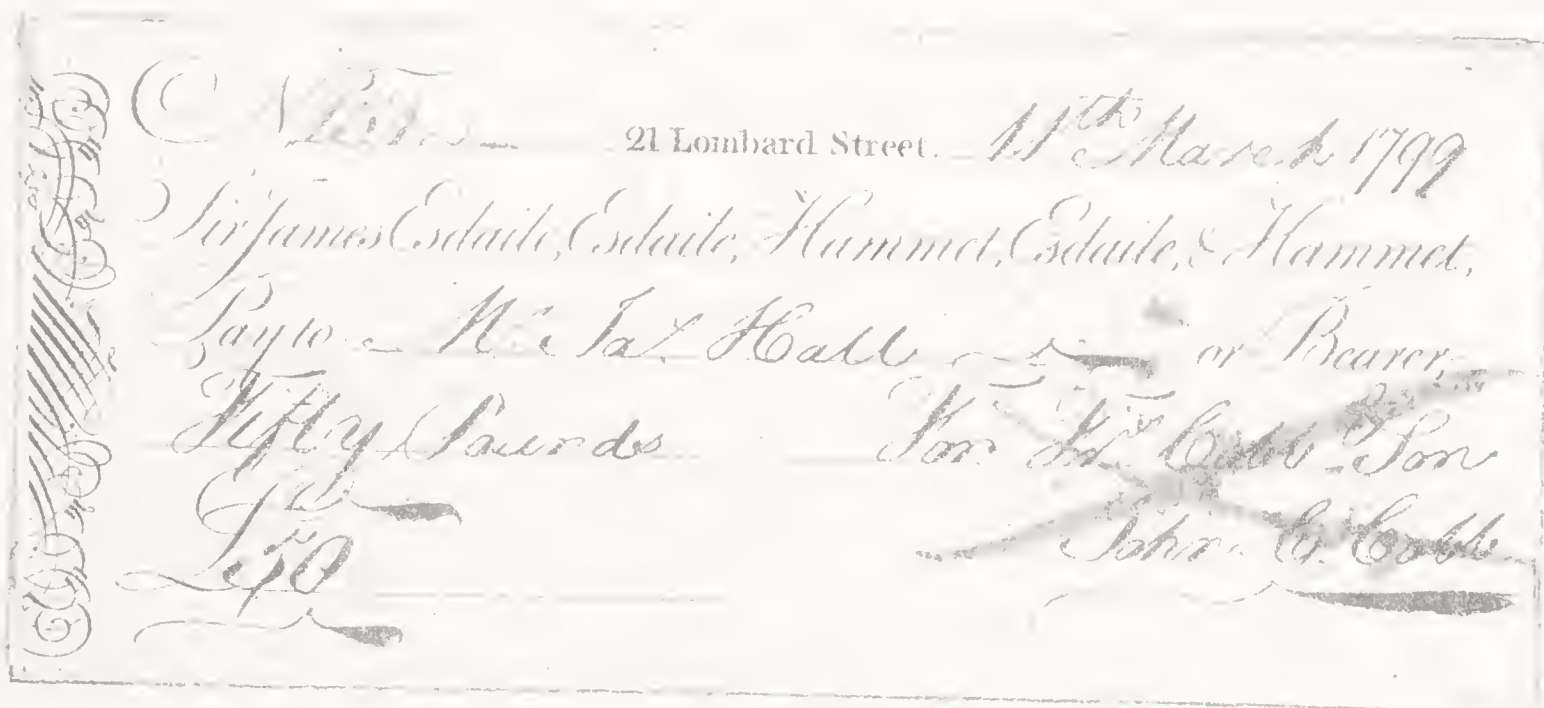 21 Lombard Street. 11th March 1799
Sir James Esdaile, Esdaile, Hammet, Esdaile, & Hammet,
Pay to Mr Jas Hall or Bearer,
Fifty Pounds For Fr Cobb & Son
£50 John C. Cobb